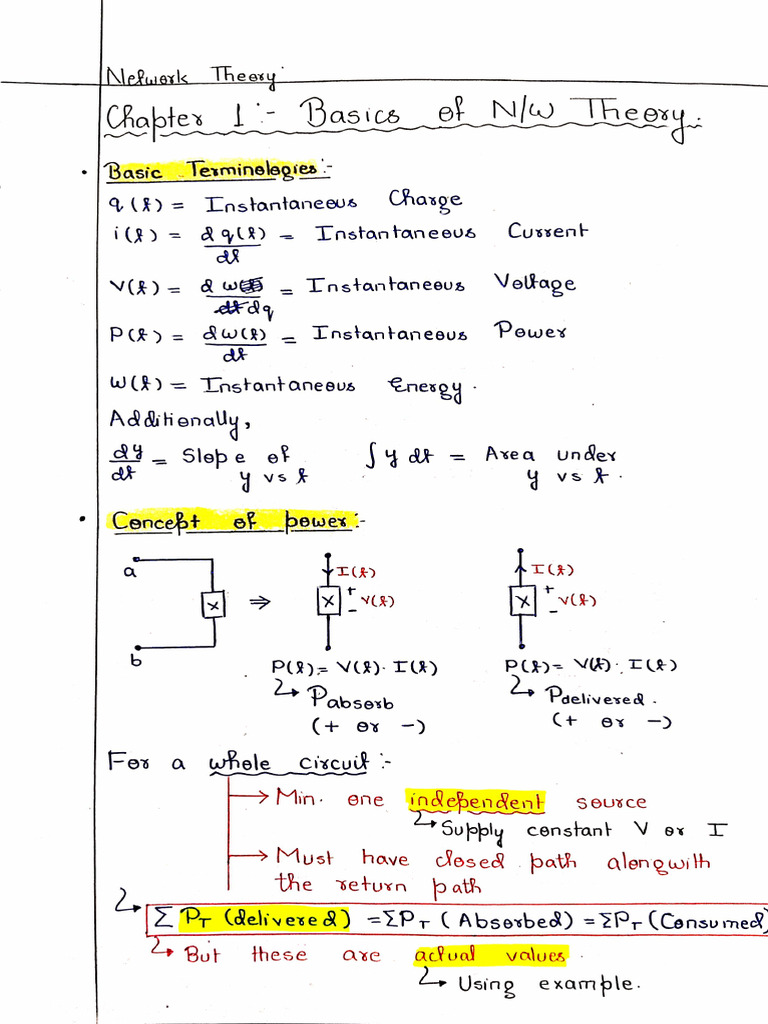 Network Theory:
Chapter 1 :- Basics of N/W Theory.
• Basic Terminologies :-
q(t) = Instantaneous Charge
i(t) = dq(t)/dt = Instantaneous Current
V(t) = dw/dq = Instantaneous Voltage
P(t) = dw(t)/dt = Instantaneous Power
w(t) = Instantaneous Energy.
Additionally,
dy/dt = Slope of y vs t ∫y dt = Area under y vs t.
• Concept of power :-
a
b
X ⇒ X I(t) + V(t) - X I(t) + V(t) -
P(t) = V(t) · I(t) P(t) = V(t) · I(t)
↳ Pabsorb ↳ Pdelivered.
(+ or -) (+ or -)
For a whole circuit :-
→ Min. one independent source
↳ Supply constant V or I
→ Must have closed path alongwith
the return path
↳ Σ PT (delivered) = ΣPT (Absorbed) = ΣPT (Consumed)
↳ But these are actual values.
↳ Using example.